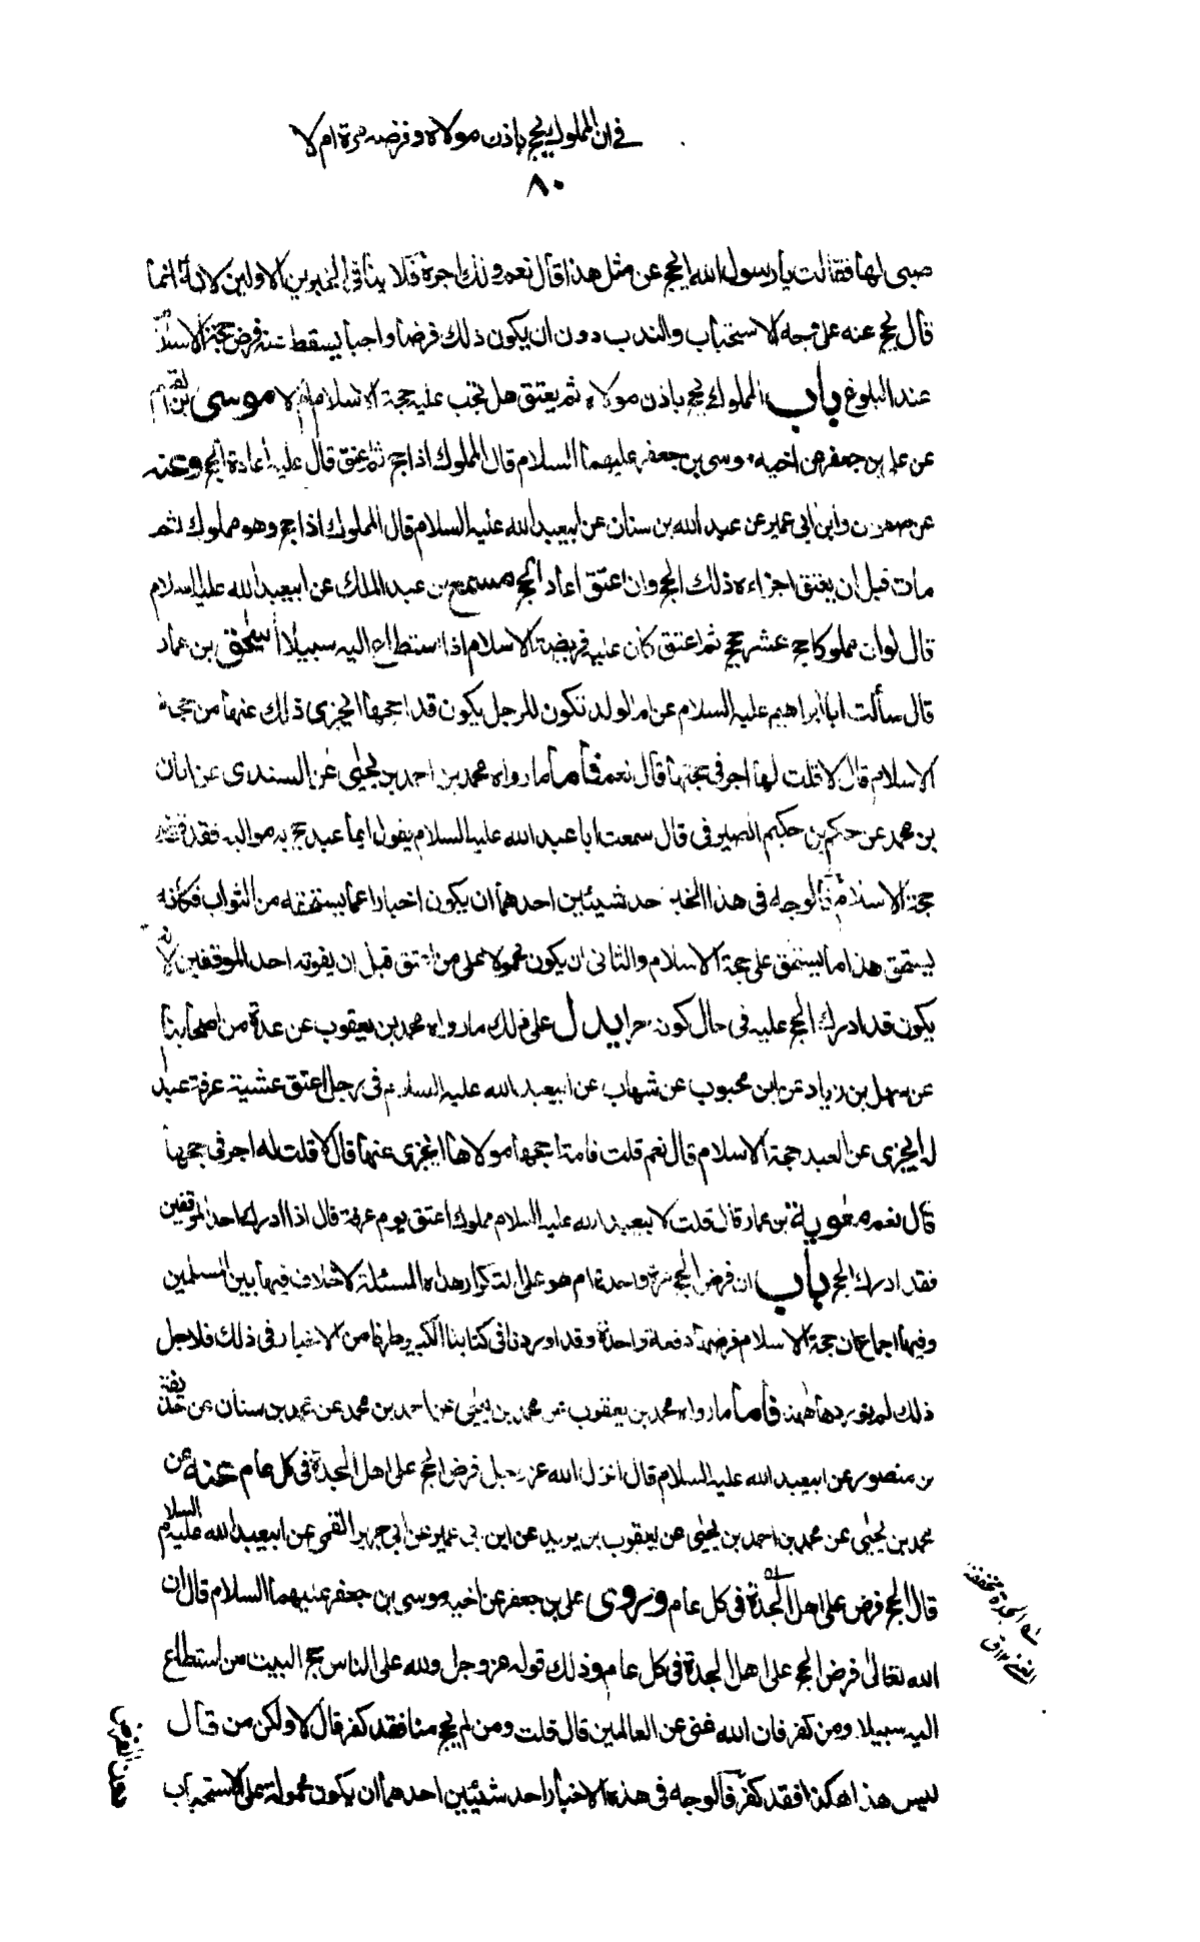 في ان المملوك يحج باذن مولاه وفرضه مرة ام لا
٨٠
صبي لها فقالت يا رسول الله ايحج عن مثل هذا قال نعم ولك اجره فلا ينافي الخبرين الاولين لانه انما
قال يحج عنه على وجه الاستحباب والندب دون ان يكون ذلك فرضا واجبا يسقط عنه فرض حجة الاسلام
عند البلوغ باب المملوك يحج باذن مولاه ثم يعتق هل تجب عليه حجة الاسلام ام لا موسى بن القسم
عن علي بن جعفر عن اخيه موسى بن جعفر عليهما السلام قال المملوك اذا حج ثم اعتق قال عليه اعادة الحج وعنه
عن صفوان وابن ابي عمير عن عبد الله بن سنان عن ابيعبد الله عليه السلام قال المملوك اذا حج وهو مملوك ثم
مات قبل ان يعتق اجزاءه ذلك الحج وان اعتق اعاد الحج مسمع بن عبد الملك عن ابيعبد الله عليه السلام
قال لو ان مملوكا حج عشر حجج ثم اعتق كان عليه فريضة الاسلام اذا استطاع اليه سبيلا اسحق بن عمار
قال سألت ابا ابراهيم عليه السلام عن ام الولد تكون للرجل يكون قد احجها ايجزي ذلك عنها من حجة
الاسلام قال لا قلت لها اجر في حجتها قال نعم فاما ما رواه محمد بن احمد بن يحيى عن السندي عن ابان
بن محمد عن حكم بن حكيم الصيرفي قال سمعت ابا عبد الله عليه السلام يقول ايما عبد حج به مواليه فقد قضى
حجة الاسلام فالوجه في هذا الخبر احد شيئين احدهما ان يكون اخبارا عما يستحقه من الثواب فكأنه
يستحق هذا ما يستحق على حجة الاسلام والثاني ان يكون محمولا على من اعتق قبل ان يفوته احد الموقفين لانه
يكون قد ادرك الحج عليه في حال كونه حرا يدل على ذلك ما رواه محمد بن يعقوب عن عدة من اصحابنا
عن سهل بن زياد عن ابن محبوب عن شهاب عن ابيعبد الله عليه السلام في رجل اعتق عشية عرفة عبدا
له ايجزي عن العبد حجة الاسلام قال نعم قلت فامة احجها مولاها ايجزي عنها قال لا قلت له اجر في حجها
قال نعم معوية بن عمار قال قلت لابيعبد الله عليه السلام مملوك اعتق يوم عرفة قال اذا ادرك احد الموقفين
فقد ادرك الحج باب ان فرض الحج مرة واحدة ام هو على التكرار هذه المسئلة لا خلاف فيها بين المسلمين
وفيها اجماع ان حجة الاسلام فرضها دفعة واحدة وقد اوردنا في كتابنا الكبير طرفا من الاخبار في ذلك فلاجل
ذلك لم نوردها هنا فاما ما رواه محمد بن يعقوب عن محمد بن يحيى عن احمد بن محمد عن محمد بن سنان عن حذيفة
بن منصور عن ابيعبد الله عليه السلام قال انزل الله عز وجل فرض الحج على اهل الجدة في كل عام عنه عن
محمد بن يحيى عن محمد بن احمد بن يحيى عن يعقوب بن يزيد عن ابن ابي عمير عن ابي جرير القمي عن ابيعبد الله عليه السلام
قال الحج فرض على اهل الجدة في كل عام وروى علي بن جعفر عن اخيه موسى بن جعفر عليهما السلام قال ان
الله تعالى فرض الحج على اهل الجدة في كل عام وذلك قوله عز وجل ولله على الناس حج البيت من استطاع
اليه سبيلا ومن كفر فان الله غني عن العالمين قال قلت ومن لم يحج منا فقد كفر قال لا ولكن من قال
ليس هذا هكذا فقد كفر فالوجه في هذه الاخبار احد شيئين احدهما ان يكون محمولة على الاستحباب
الجدة مخففة
الغنى ١٢ ق